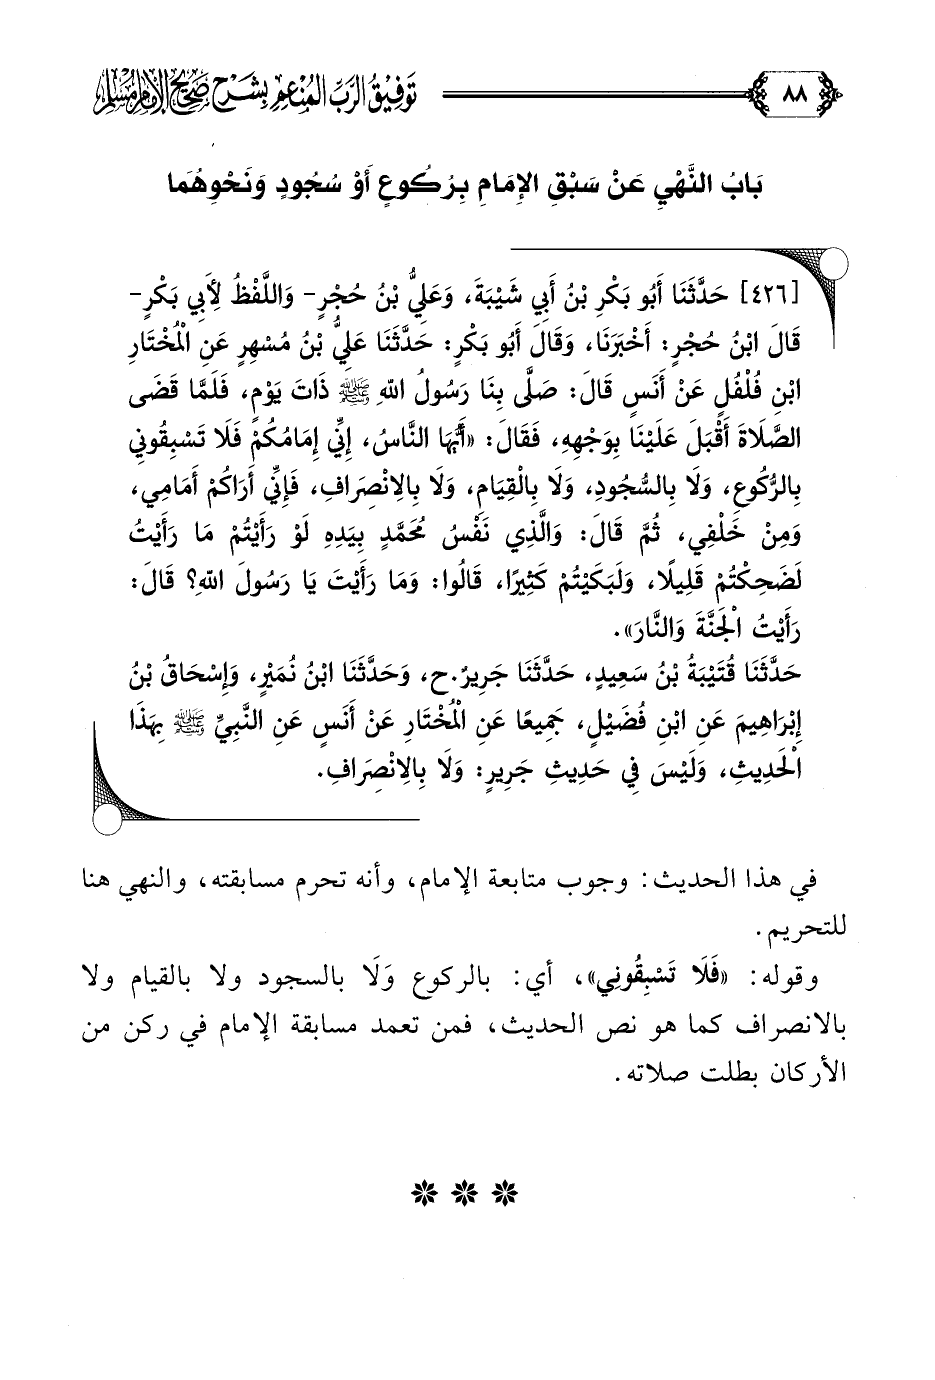 ٨٨
توفيق الرب المنعم بشرح صحيح الإمام مسلم
بَابُ النَّهْيِ عَنْ سَبْقِ الإِمَامِ بِرُكُوعٍ أَوْ سُجُودٍ وَنَحْوِهُمَا
[٤٢٦] حَدَّثَنَا أَبُو بَكْرِ بْنُ أَبِي شَيْبَةَ، وَعَلِيُّ بْنُ حُجْرٍ- وَاللَّفْظُ لِأَبِي بَكْرٍ-
قَالَ ابْنُ حُجْرٍ: أَخْبَرَنَا، وَقَالَ أَبُو بَكْرٍ: حَدَّثَنَا عَلِيُّ بْنُ مُسْهِرٍ عَنِ الْمُخْتَارِ
ابْنِ فُلْفُلٍ عَنْ أَنَسٍ قَالَ: صَلَّى بِنَا رَسُولُ اللهِ ﷺ ذَاتَ يَوْمٍ، فَلَمَّا قَضَى
الصَّلَاةَ أَقْبَلَ عَلَيْنَا بِوَجْهِهِ، فَقَالَ: «أَيُّهَا النَّاسُ، إِنِّي إِمَامُكُمْ فَلَا تَسْبِقُونِي
بِالرُّكُوعِ، وَلَا بِالسُّجُودِ، وَلَا بِالْقِيَامِ، وَلَا بِالِانْصِرَافِ، فَإِنِّي أَرَاكُمْ أَمَامِي،
وَمِنْ خَلْفِي، ثُمَّ قَالَ: وَالَّذِي نَفْسُ مُحَمَّدٍ بِيَدِهِ لَوْ رَأَيْتُمْ مَا رَأَيْتُ
لَضَحِكْتُمْ قَلِيلًا، وَلَبَكَيْتُمْ كَثِيرًا، قَالُوا: وَمَا رَأَيْتَ يَا رَسُولَ اللهِ؟ قَالَ:
رَأَيْتُ الْجَنَّةَ وَالنَّارَ».
حَدَّثَنَا قُتَيْبَةُ بْنُ سَعِيدٍ، حَدَّثَنَا جَرِيرٌ.ح، وَحَدَّثَنَا ابْنُ نُمَيْرٍ، وَإِسْحَاقُ بْنُ
إِبْرَاهِيمَ عَنِ ابْنِ فُضَيْلٍ، جَمِيعًا عَنِ الْمُخْتَارِ عَنْ أَنَسٍ عَنِ النَّبِيِّ ﷺ بِهَذَا
الْحَدِيثِ، وَلَيْسَ فِي حَدِيثِ جَرِيرٍ: وَلَا بِالِانْصِرَافِ.
في هذا الحديث: وجوب متابعة الإمام، وأنه تحرم مسابقته، والنهي هنا
للتحريم.
وقوله: «فَلَا تَسْبِقُونِي»، أي: بالركوع وَلَا بالسجود ولا بالقيام ولا
بالانصراف كما هو نص الحديث، فمن تعمد مسابقة الإمام في ركن من
الأركان بطلت صلاته.